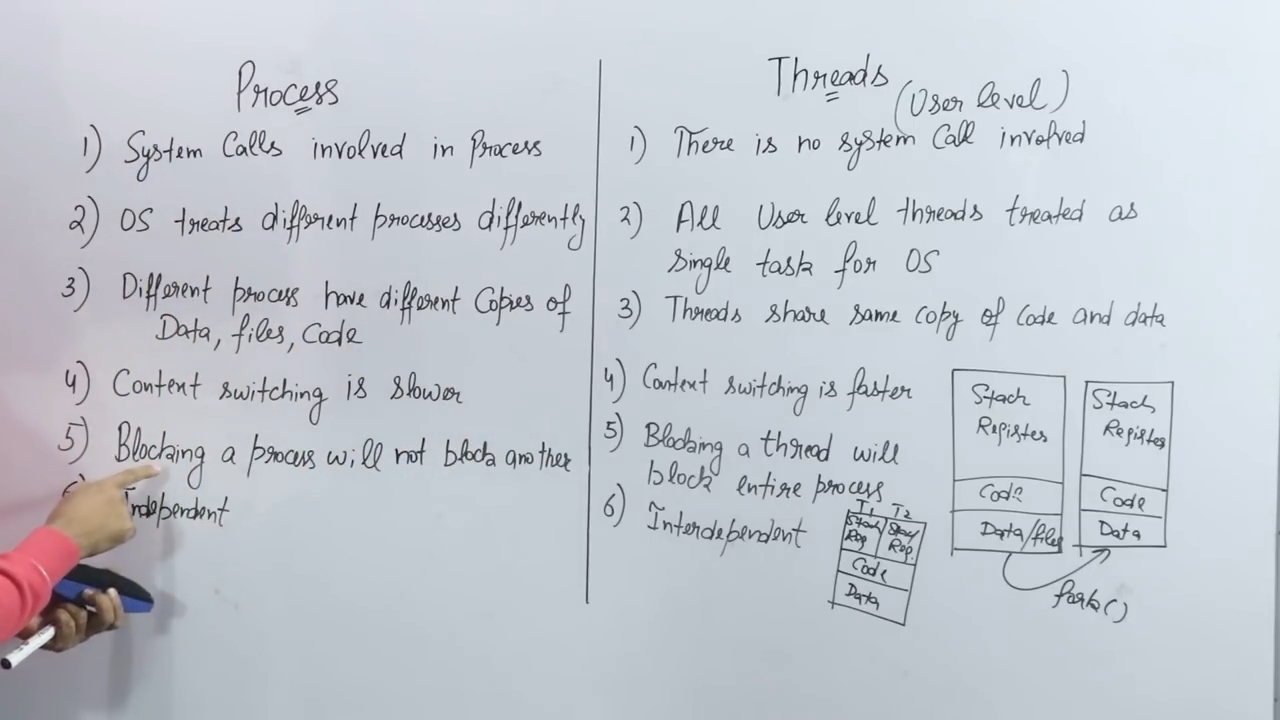 Process
1) System Calls involved in Process
2) OS treats different processes differently
3) Different process have different Copies of
Data, files, Code
4) Context switching is slower
5) Blocking a process will not block another
6) Independent
Threads
(User level)
1) There is no system Call involved
2) All User level threads treated as
single task for OS
3) Threads share same copy of code and data
4) Context switching is faster
5) Blocking a thread will
block entire process
6) Interdependent
T1 T2
Stack Stack
Reg Reg.
Code
Data
Stack
Register
Code
Data/files
Stack
Register
Code
Data
fork()